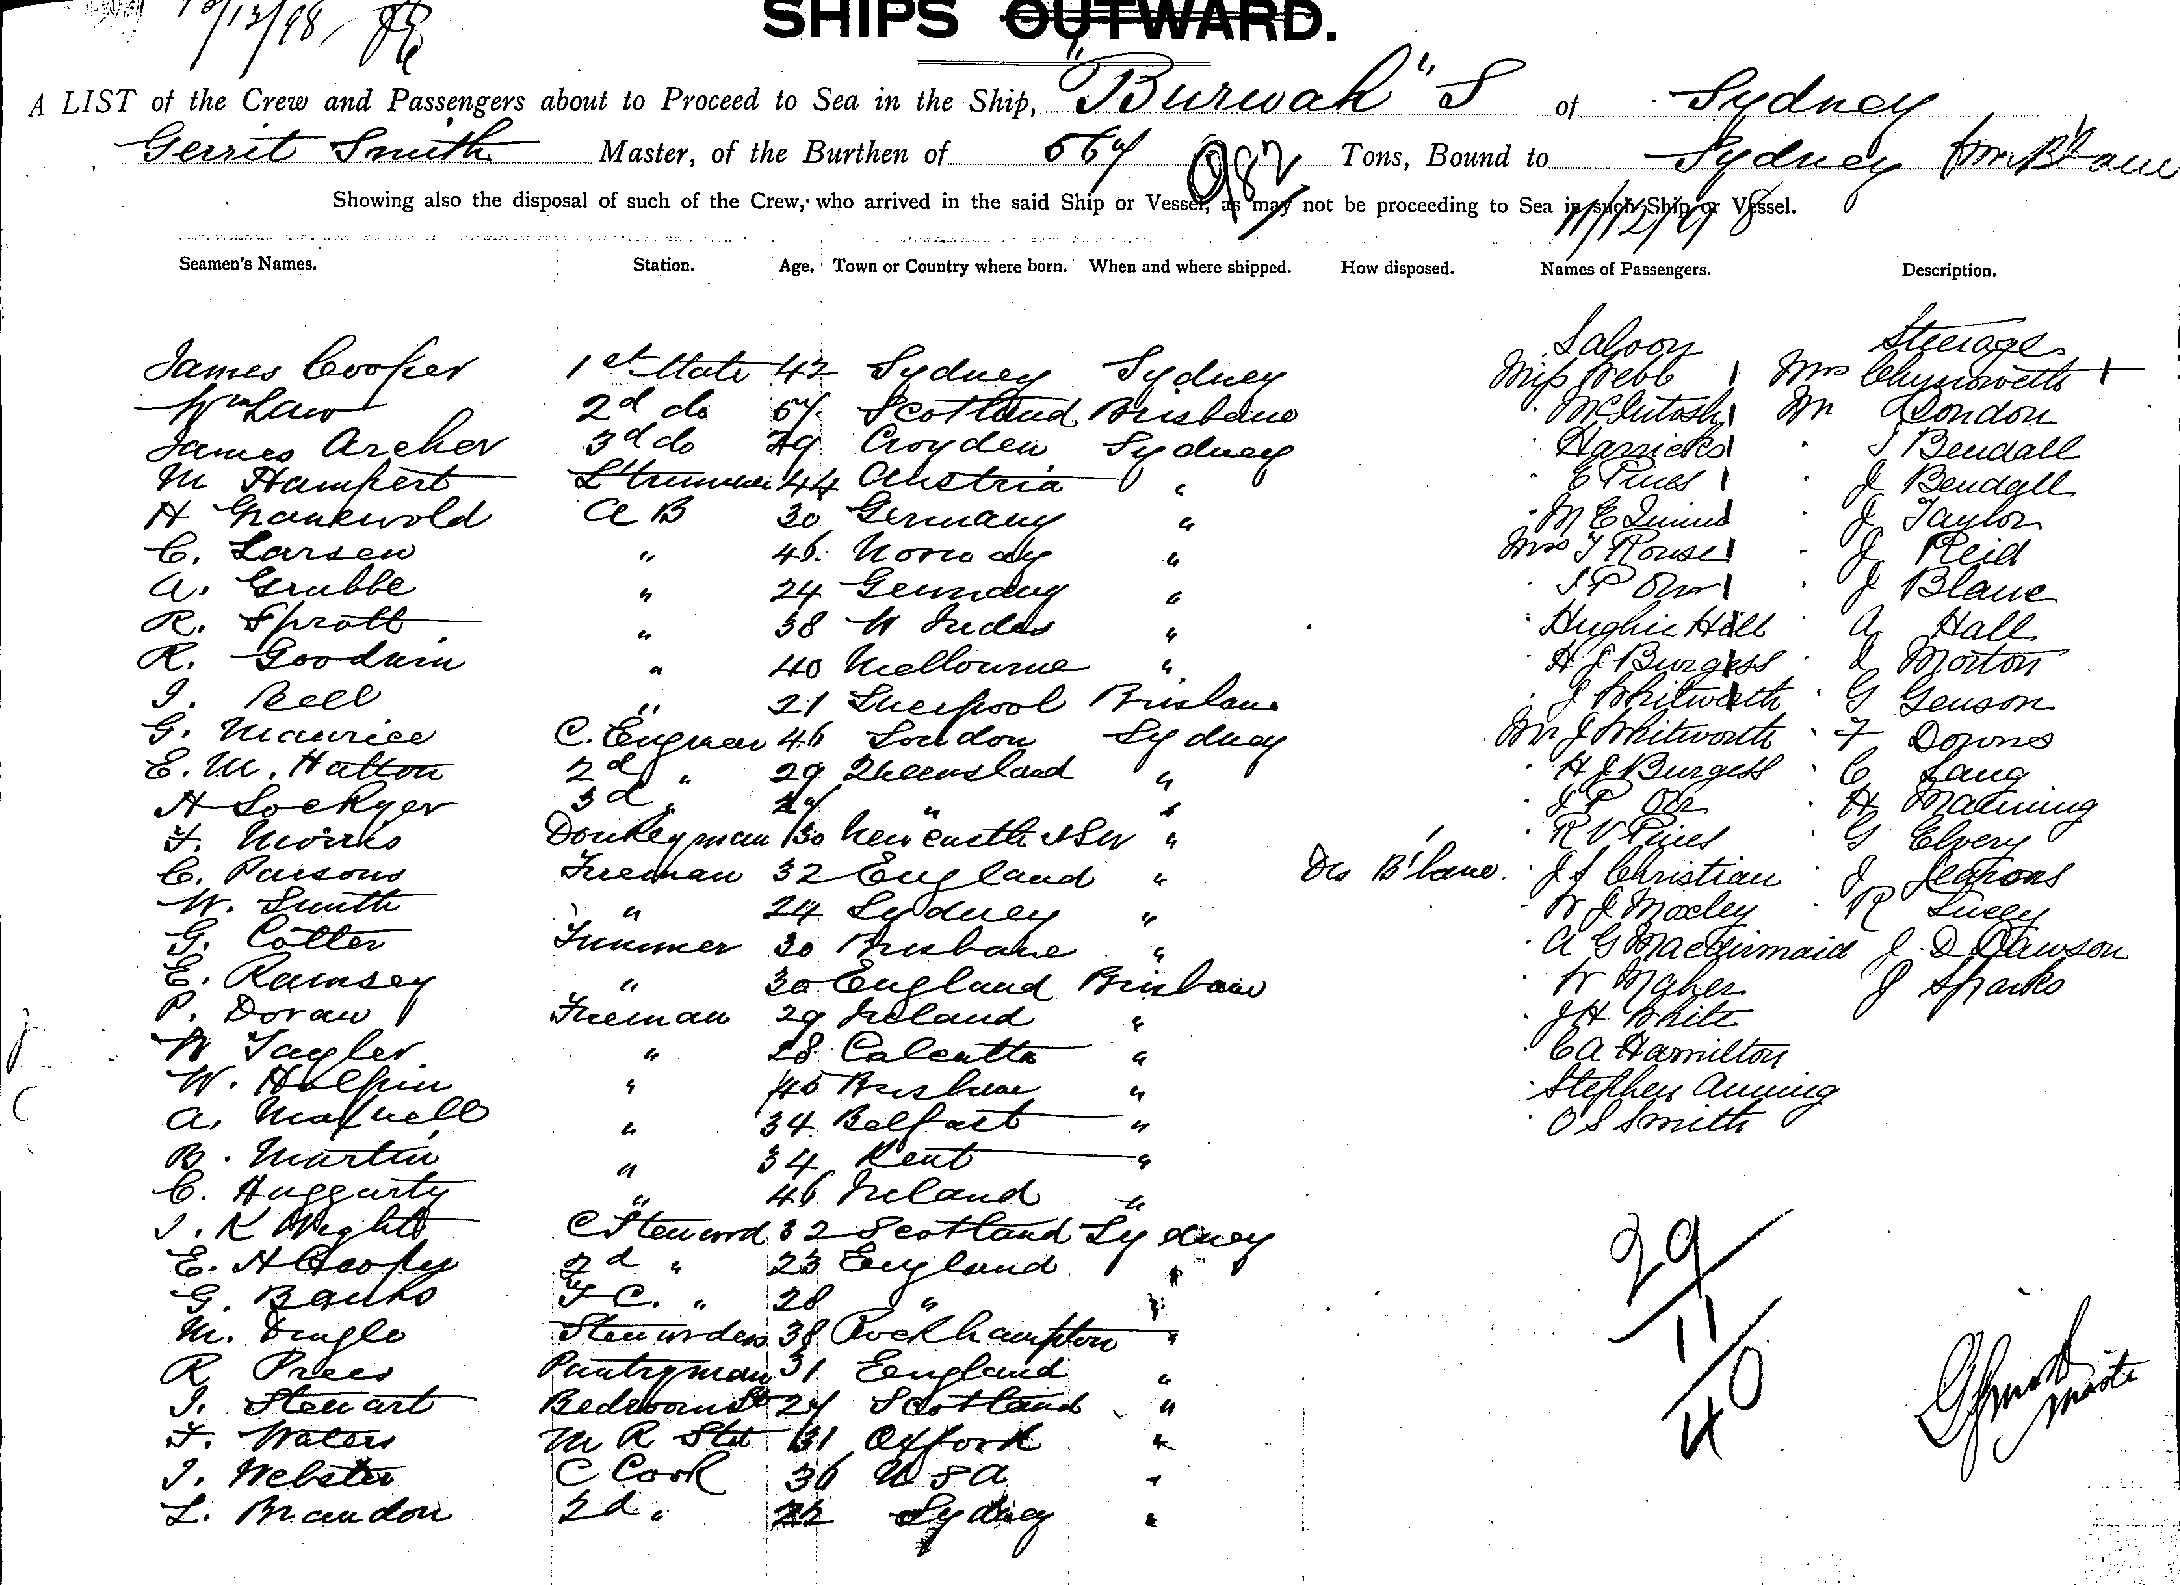 10/12/98
SHIPS OUTWARD.
A LIST of the Crew and Passengers about to Proceed to Sea in the Ship, "Burwah" S of Sydney
Gerrit Smith Master, of the Burthen of 567 982 Tons, Bound to Sydney from B'bane
Showing also the disposal of such of the Crew, who arrived in the said Ship or Vessel, as may not be proceeding to Sea in such Ship or Vessel.
11/12/98
Seamen's Names. Station. Age. Town or Country where born. When and where shipped. How disposed. Names of Passengers. Description.
Saloon Steerage
James Cooper 1st Mate 42 Sydney Sydney Miss Webb 1 Mrs Chynoweth 1
Wm Law 2d do 57 Scotland Brisbane " McIntosh 1 Mr A London
James Archer 3d do Croyden Sydney " Harricks 1 " S Bendall
M Hampert Ltrimmer 44 Austria " " E Pines 1 " J Bendall
H Granewold A B 30 Germany " " M E Quinn 1 " J Taylor
C. Larsen " 46 Norway " Mrs T Rouse 1 " J Reid
A. Grubbe " 24 Germany " " J P Orr 1 " J Blane
R. Sprott " 38 W Indes " " Hughie Hill " A Hall
R. Goodwin " 40 Melbourne " " H J Burgess " Morton
J. Bell " 21 Liverpool Brisbane " J Whitworth " G Genson
G. Maurice C. Engineer 46 London Sydney Mr J Whitworth " F Downs
E. M. Hatton 2d " 29 Queensland " " H J Burgess " C Lang
H Lockyer 3d " 27 " " " J P Orr " H Manning
F. Morris Donkeyman 30 Newcastle NSW " " R V Pines " G Elvery
C. Parsons Fireman 32 England " Dis B'bane. " J S Christian " J
W. Smith " 24 Sydney " " W J Moxley " R Lucey
G. Cotter Trimmer 30 Brisbane " " A G MacDirmaid J. D Dawson
E. Ramsey " 30 England Brisbane " W Maher J Sparks
P. Doran Fireman 29 Ireland " " J H White
W Tayler " 28 Calcutta " " C A Hamilton
W. Halpin " 45 Brisbane " " Stephen Anning
A. Maxwell " 34 Belfast " " O S Smith
B. Martin " 34 Kent "
C. Haggarty " 46 Ireland "
J. K Wright C Steward 32 Scotland Sydney
E. H Cooper 2d " 23 England "
G. Banks F C. " 28 " "
M. Dingle Stewardess 38 Rockhampton "
R Prees Pantryman 31 England "
J. Stewart Bedroom St 27 Scotland "
F. Waters M R Std 31 Oxford "
J. Webster C Cook 36 U S A "
L. Brandon 2d " 22 Sydney "
29
11
40
G Smith
Master